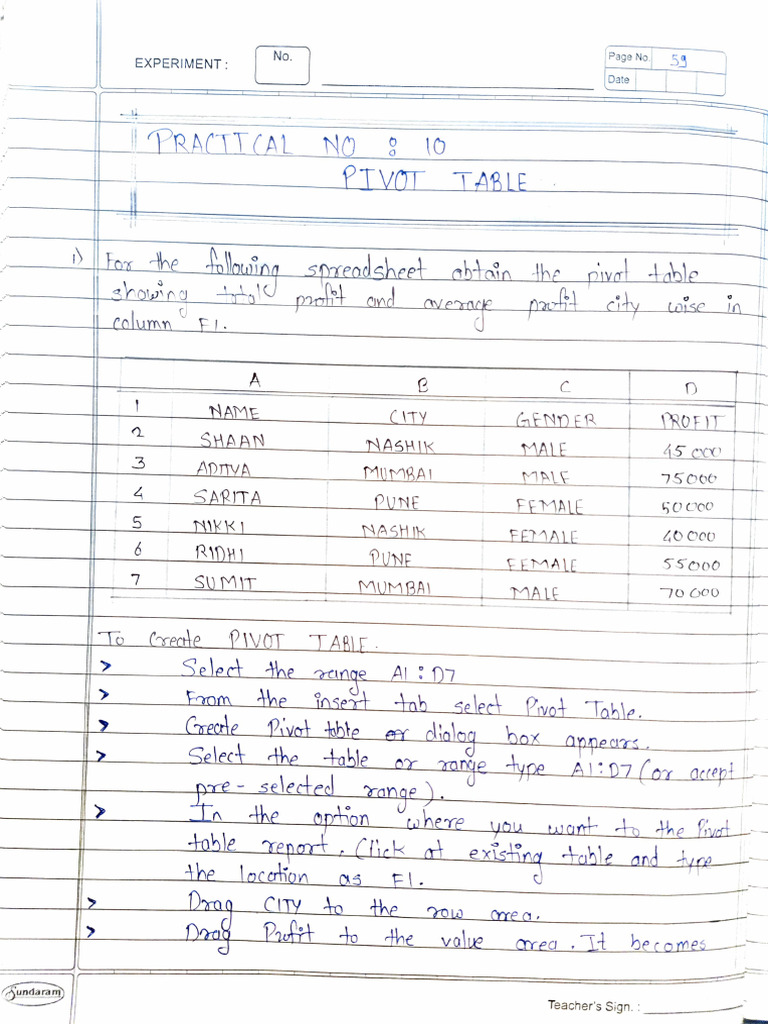 EXPERIMENT : No. Page No. 59
Date
PRACTICAL NO : 10
PIVOT TABLE
1) For the following spreadsheet obtain the pivot table
showing total profit and average profit city wise in
column F1.
A B C D
1 NAME CITY GENDER PROFIT
2 SHAAN NASHIK MALE 45000
3 ADITYA MUMBAI MALE 75000
4 SARITA PUNE FEMALE 50000
5 NIKKI NASHIK FEMALE 40000
6 RIDHI PUNE FEMALE 55000
7 SUMIT MUMBAI MALE 70000
To Create PIVOT TABLE.
> Select the range A1:D7
> From the insert tab select Pivot Table.
> Create Pivot table or dialog box appears.
> Select the table or range type A1:D7 (or accept
pre-selected range).
> In the option where you want to the Pivot
table report. Click at existing table and type
the location as F1.
> Drag CITY to the row area.
> Drag Profit to the value area. It becomes
Sundaram
Teacher's Sign. :